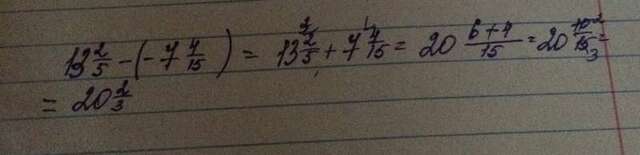 13 2/5 - (-7 4/15) = 13 2/5 ³ + 7 4/15 ¹ = 20 (6+4)/15 = 20 10/15 ² ₃ =
= 20 2/3